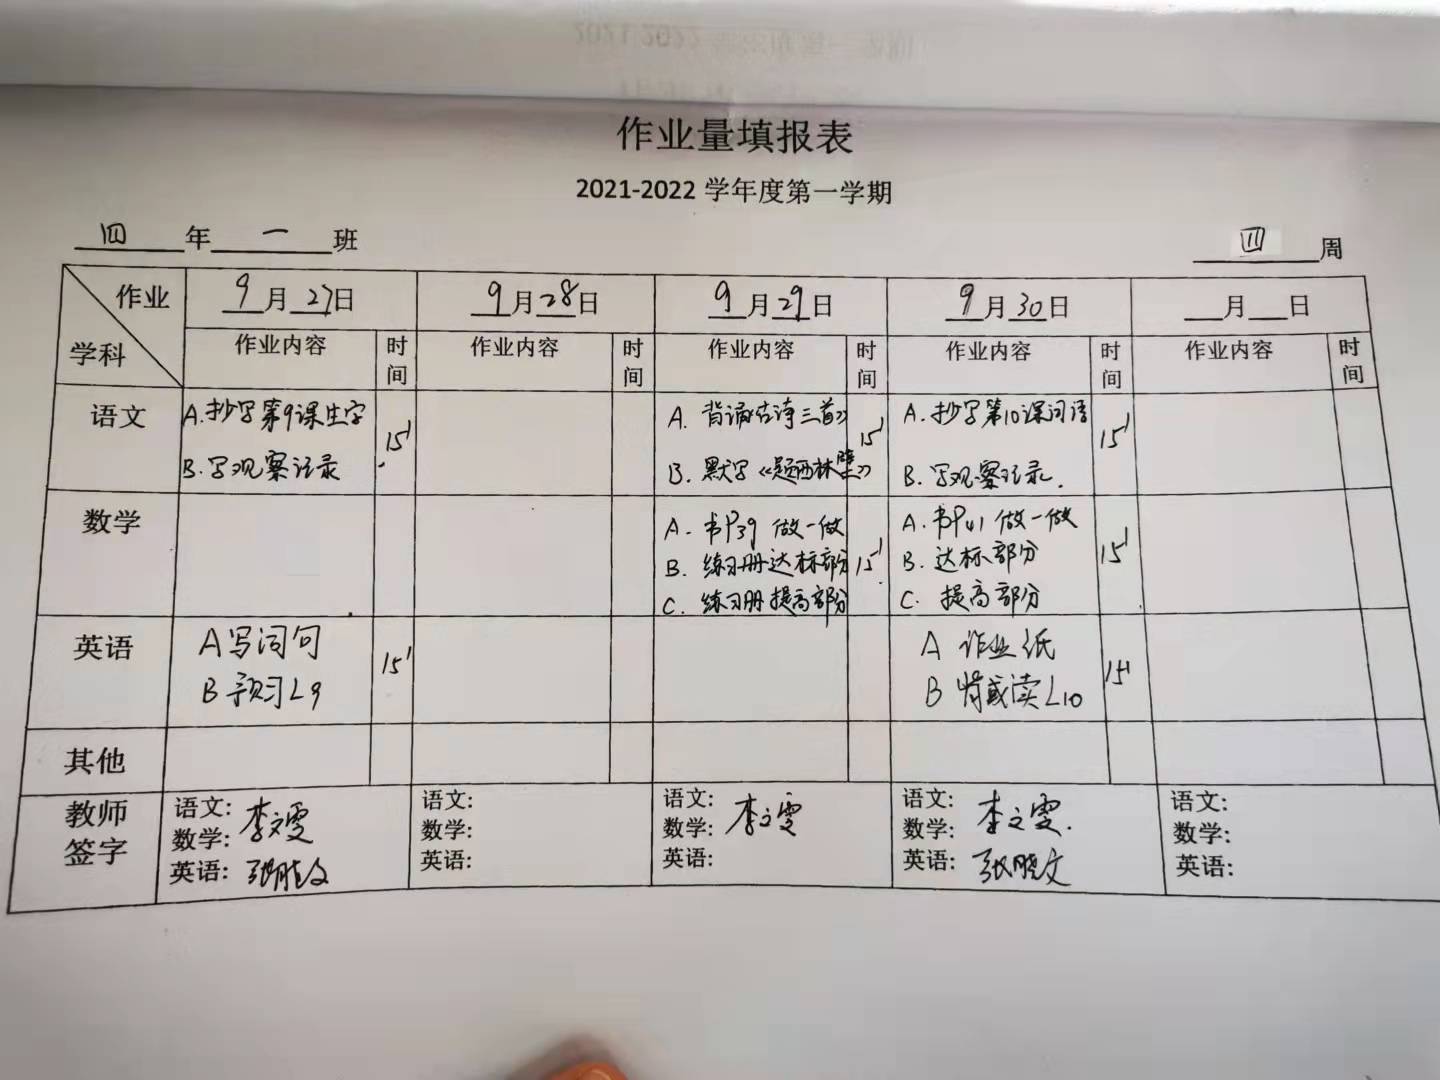 作业量填报表
2021-2022 学年度第一学期
四 年 一 班
四 周
作业
学科
9 月 27 日
9 月 28 日
9 月 29 日
9 月 30 日
月 日
作业内容 时间 作业内容 时间 作业内容 时间 作业内容 时间 作业内容 时间
语文
A.抄写第9课生字
B.写观察记录
15'
A. 背诵《古诗三首》
B. 默写《题西林壁》
15'
A.抄写第10课词语
B.写观察记录.
15'
数学
A. 书P39 做一做
B. 练习册达标部分
C. 练习册提高部分
15'
A.书P41 做一做
B. 达标部分
C. 提高部分
15'
英语
A 写词句
B 预习L9
15'
A 作业纸
B 背或读L10
15'
其他
教师
签字
语文: 李文雯
数学:
英语: 张晓文
语文:
数学:
英语:
语文: 李文雯
数学:
英语:
语文: 李文雯.
数学:
英语: 张晓文
语文:
数学:
英语: